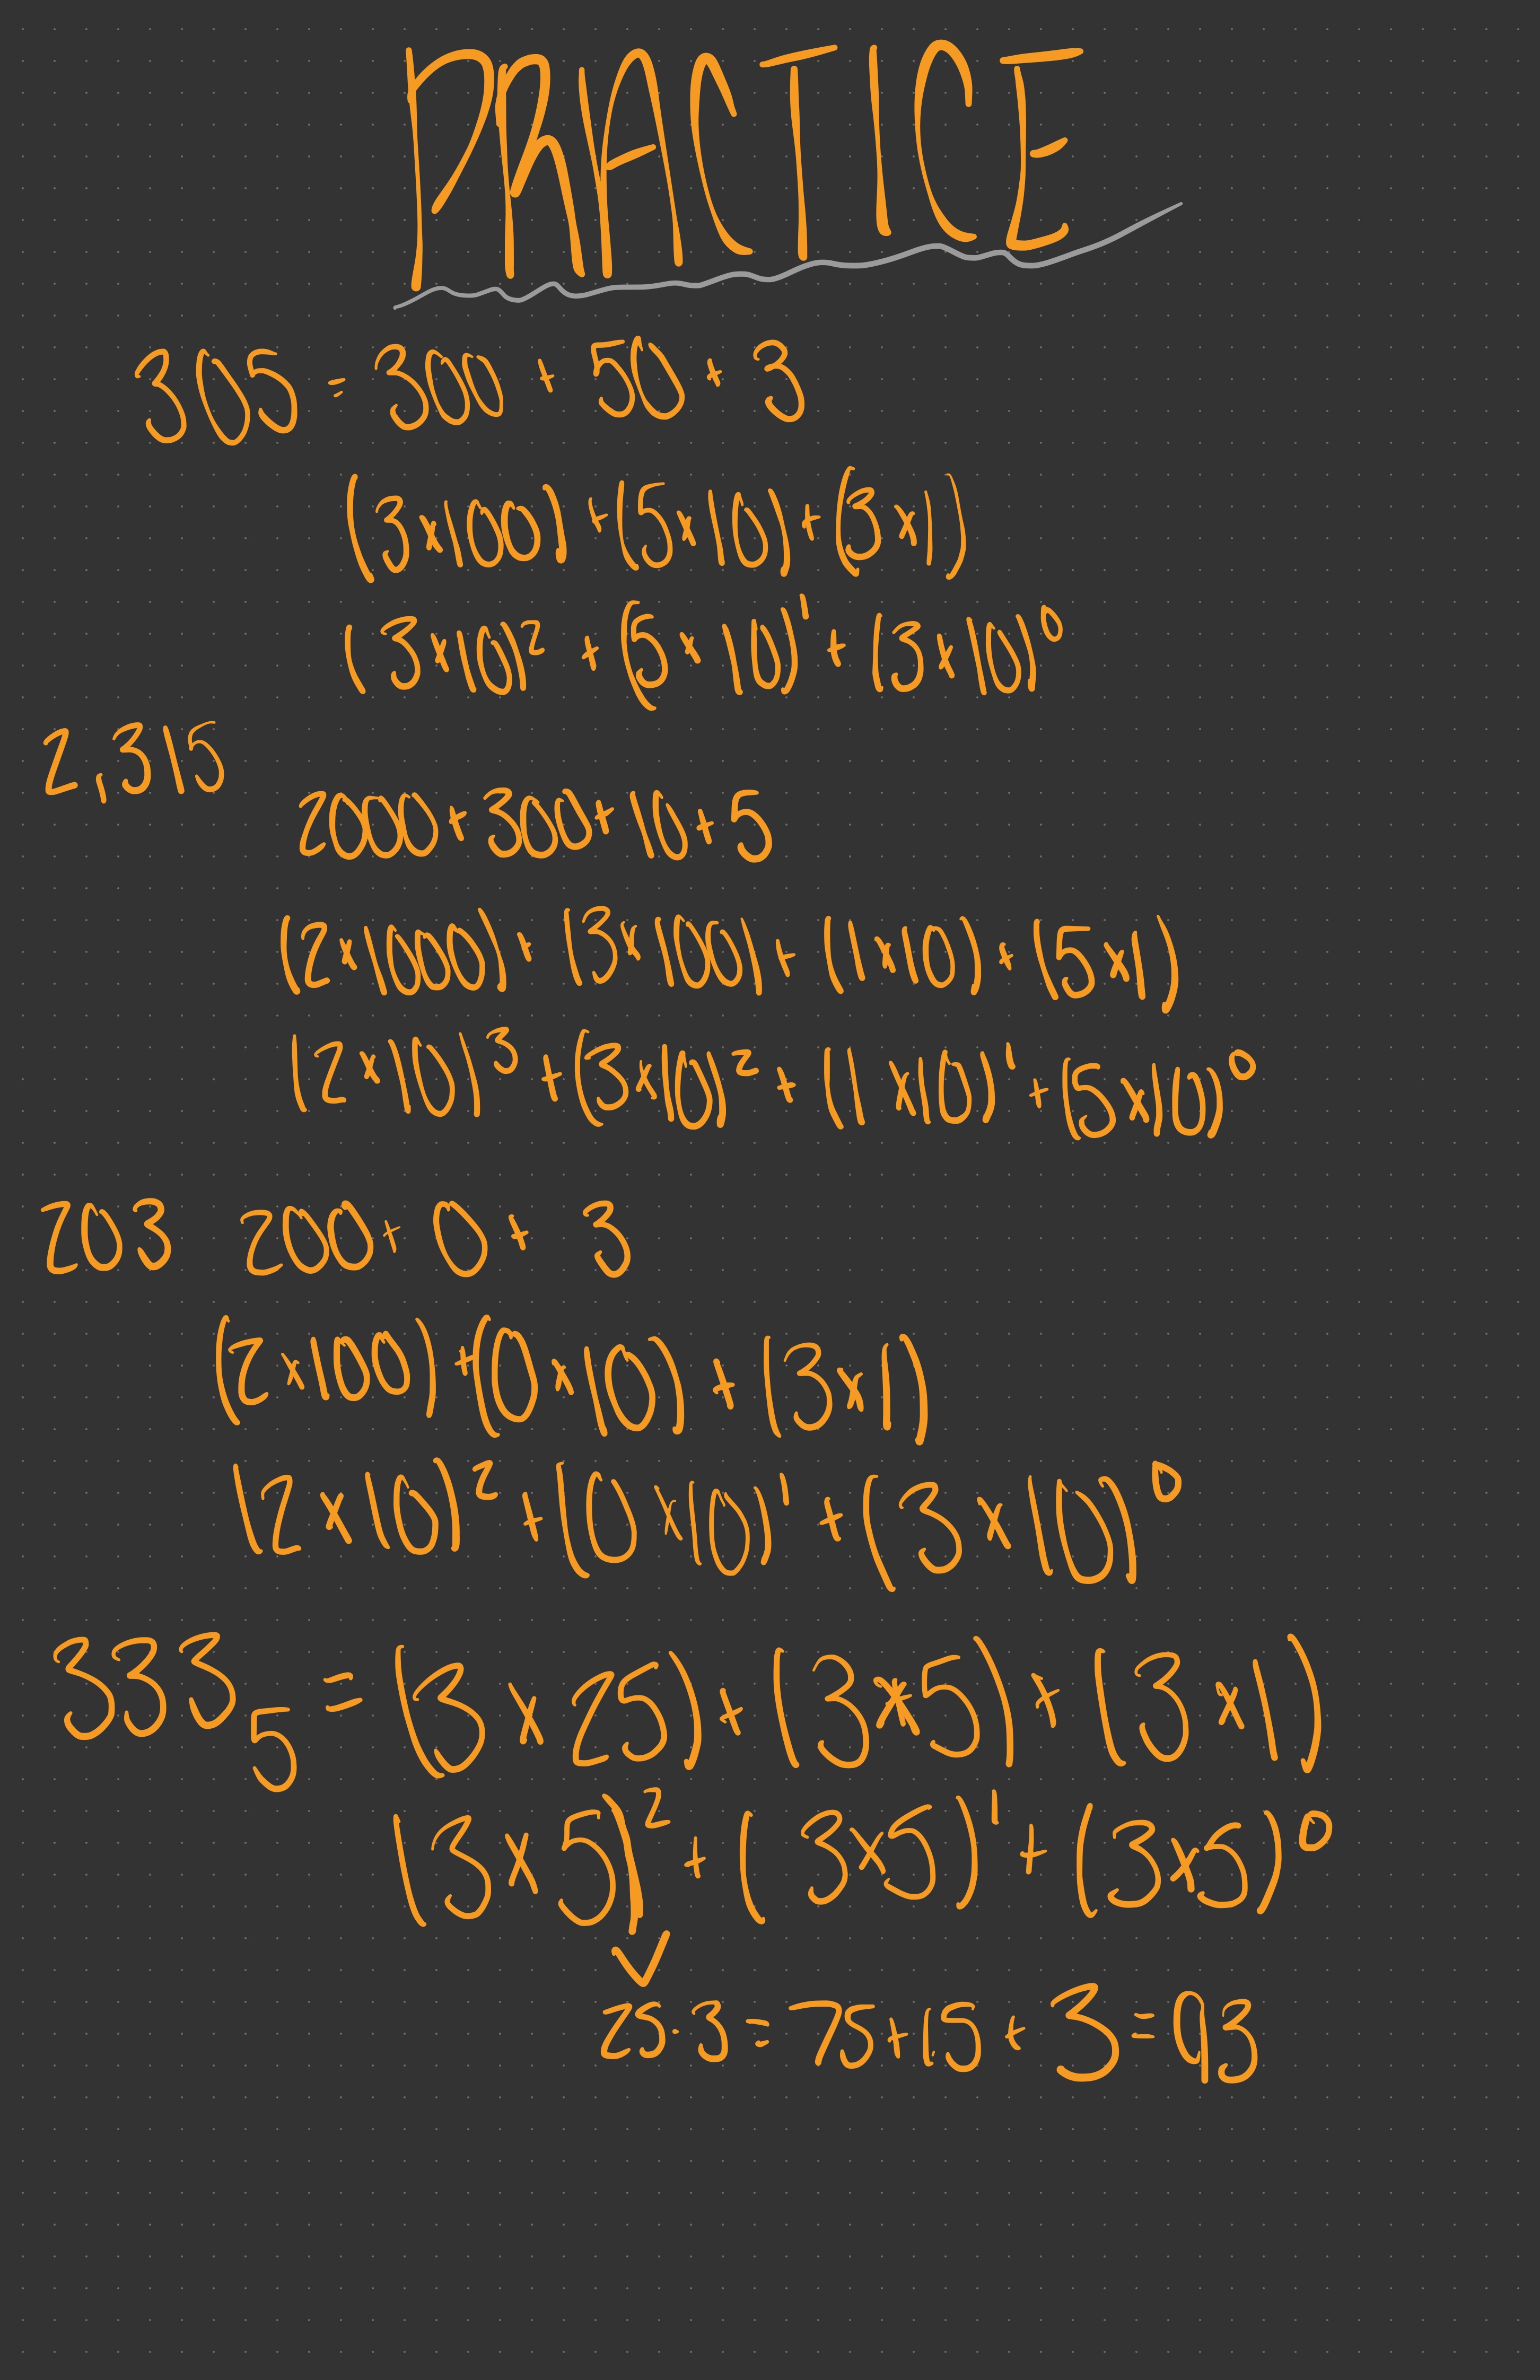 PRACTICE
305 = 300 + 50 + 3
(3x100) + (5x10) + (3x1)
(3x10)² + (5x10)¹ + (3x10)⁰
2,315
2000 + 300 + 10 + 5
(2x1000) + (3x100) + (1x10) + (5x1)
(2x10)³ + (3x10)² + (1x10)¹ + (5x10)⁰
203 200 + 0 + 3
(2x100) + (0x10) + (3x1)
(2x10)² + (0x10)¹ + (3x10)⁰
333₅ = (3x25) + (3x5) + (3x1)
(3x5)² + (3x5)¹ + (3x5)⁰
25·3 = 75 + 15 + 3 = 93